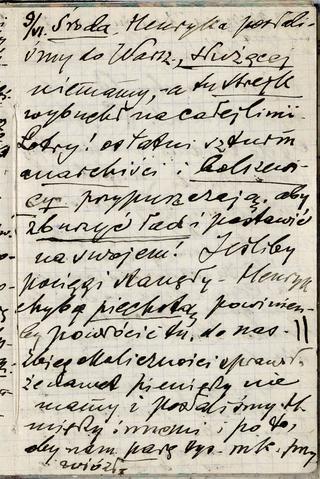 9/VI. Środa. Henryka posłali-
śmy do Warsz., służącej
niemamy, a tu strejk
wybuchł na całej linii.
Łotry! ostatni szturm
anarchiści i bolszewi-
cy przypuszczają, aby
zburzyć ład i postawić
na swojem! Jeśliby
pociągi stanęły - Henryk
chyba piechotą, powinien-
by powrócić tu, do nas -
zbieg okoliczności sprawił
że nawet pieniędzy nie
mamy i posłaliśmy H.
między innemi i po to,
aby nam parę tys. mk. przy
wiózł.